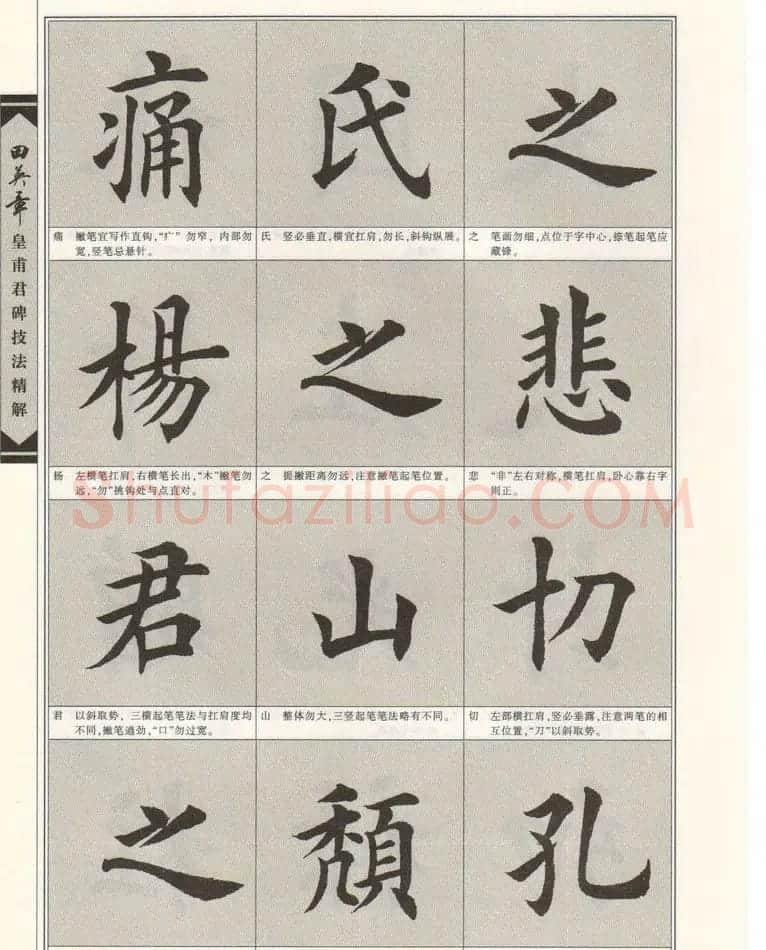 田英章
皇甫君碑技法精解
痛 氏 之
痛 撇笔宜写作直钩,“疒”勿窄,内部勿
宽,竖笔忌悬针。
氏 竖必垂直,横宜扛肩,勿长,斜钩纵展。
之 笔画勿细,点位于字中心,捺笔起笔应
藏锋。
楊 之 悲
杨 左横笔扛肩,右横笔长出,“木”撇笔勿
远,“勿”挑钩处与点直对。
之 提撇距离勿远,注意撇笔起笔位置。
悲 “非”左右对称,横笔扛肩,卧心靠右字
则正。
Shufaziliao.COM
君 山 切
君 以斜取势,三横起笔笔法与扛肩度均
不同,撇笔遒劲,“口”勿过宽。
山 整体勿大,三竖起笔笔法略有不同。
切 左部横扛肩,竖必垂露,注意两笔的相
互位置,“刀”以斜取势。
之 頹 孔